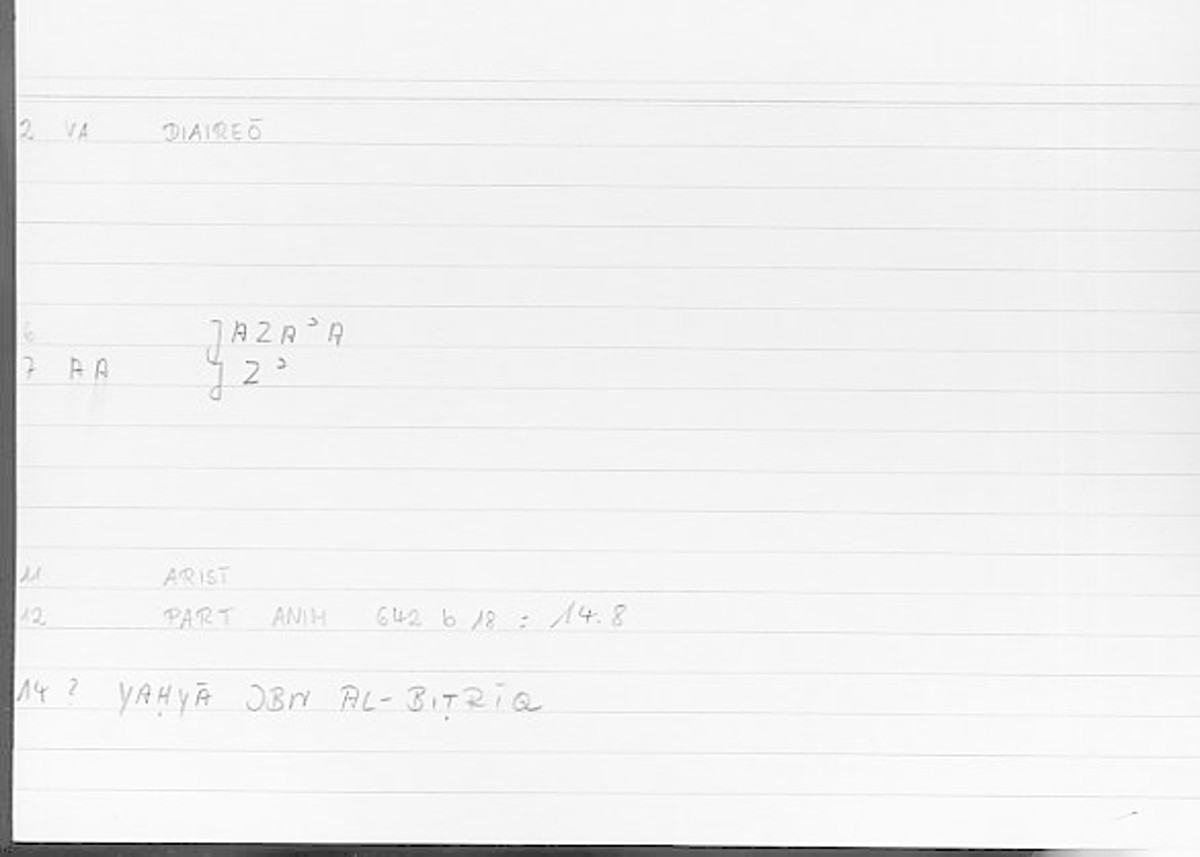 2 VA DIAIREŌ
6 ] AZAʾA
7 AA ] Zʾ
11 ARIST
12 PART ANIM 642 b 18 : 14.8
14 ? YAḤYĀ IBN AL-BIṬRĪQ